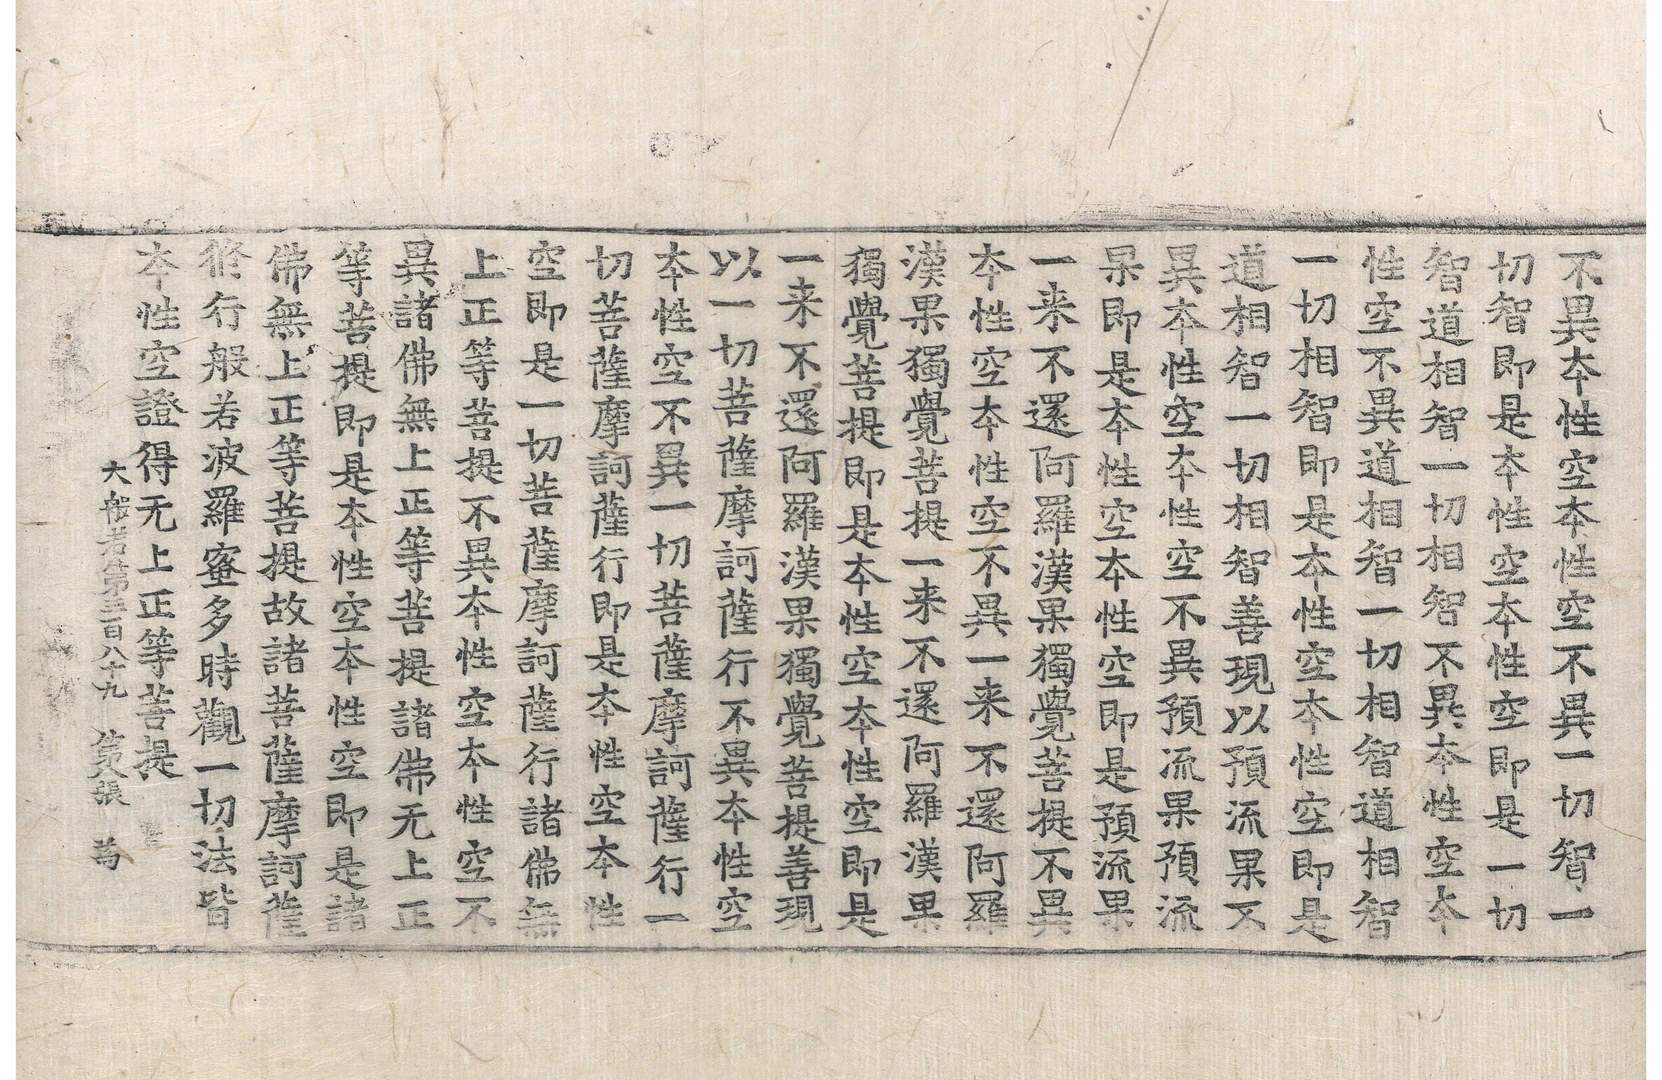 不異本性空本性空不異一切智一
切智即是本性空本性空即是一切
智道相智一切相智不異本性空本
性空不異道相智一切相智道相智
一切相智即是本性空本性空即是
道相智一切相智善現以預流果不
異本性空本性空不異預流果預流
果即是本性空本性空即是預流果
一来不還阿羅漢果獨覺菩提不異
本性空本性空不異一来不還阿羅
漢果獨覺菩提一来不還阿羅漢果
獨覺菩提即是本性空本性空即是
一来不還阿羅漢果獨覺菩提善現
以一切菩薩摩訶薩行不異本性空
本性空不異一切菩薩摩訶薩行一
切菩薩摩訶薩行即是本性空本性
空即是一切菩薩摩訶薩行諸佛無
上正等菩提不異本性空本性空不
異諸佛無上正等菩提諸佛无上正
等菩提即是本性空本性空即是諸
佛無上正等菩提故諸菩薩摩訶薩
修行般若波羅蜜多時觀一切法皆
本性空證得无上正等菩提
大般若第三百八十九 第八張 為